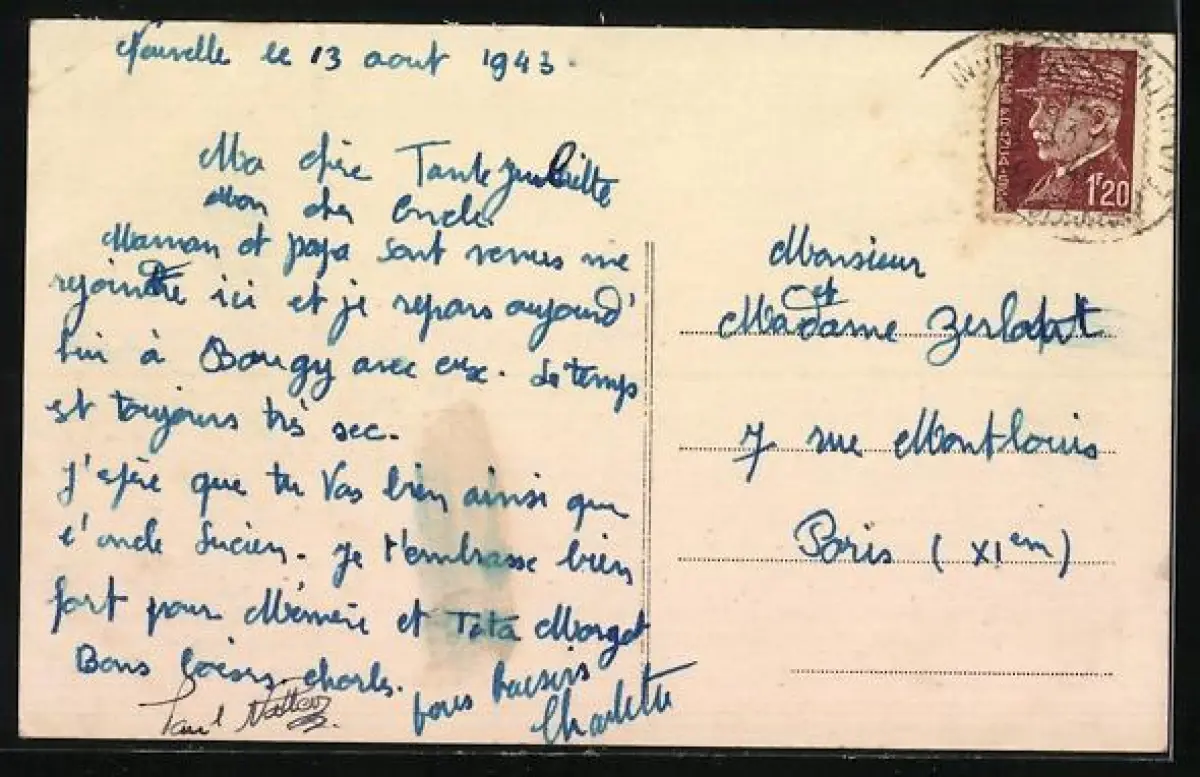 le 13 aout 1943.
Ma chère Tante
Mon cher Oncle
Maman et papa sont venus me
rejoindre ici et je repars aujourd'
hui à Bougy avec eux. Le temps
est toujours très sec.
J'espère que tu vas bien ainsi que
l'oncle Lucien. Je t'embrasse bien
fort pour Mémère et Tata Margot
Bons charles. gros baisers
Paul
Charlette
1F20
Monsieur
et
Madame
7 rue Montlouis
Paris (XIem)